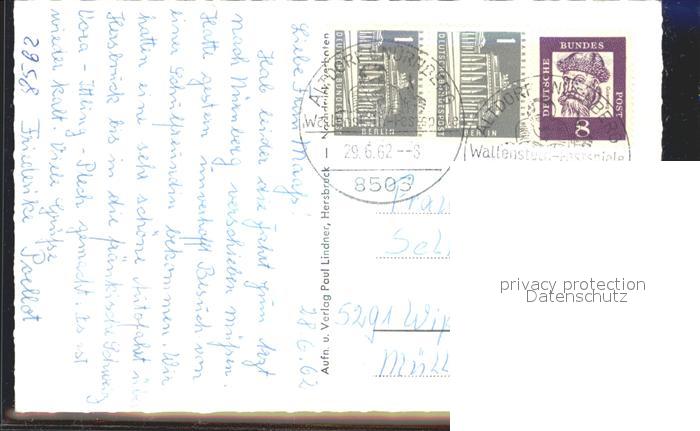 28.6.62
Liebe Frau Marys!
Hab leider die Fahrt zum Arzt
nach Nürnberg verschieben müssen.
Hatte gestern unverhofft Besuch von
einer Schulfreundin bekommen. Wir
hatten eine sehr schöne Autofahrt über
Hersbruck bis in die fränkische Schweiz
Plech gemacht. Es ist
wieder kalt. Viele Grüße
2958 Friederike Poellot
Aufn. u. Verlag Paul Lindner, Hersbruck — Nachdruck verboten
DEUTSCHE BUNDESPOST
1
BERLIN
DEUTSCHE BUNDESPOST
1
BERLIN
DEUTSCHE
BUNDES
POST
8
ALTDORF B. NÜRNBERG
Wallenstein-Festspiele
29.6.62 --8
8503
ALTDORF B. NÜRNBERG
Wallenstein-Festspiele
Frau
Sch
5291 Wip
Müll
privacy protection
Datenschutz